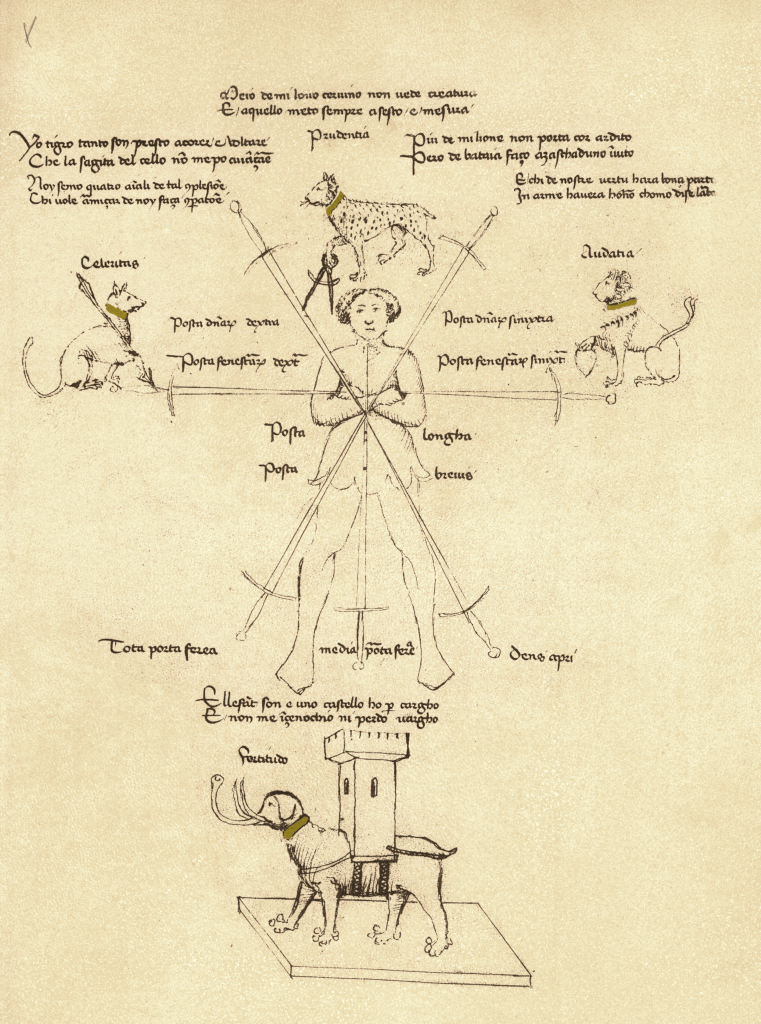 Meio de mi lovo cervino non vede creatura
E aquello meto sempre a sesto e mesura
Prudentia
Yo tigro tanto son presto a correr e voltare
Che la sagita del cello nō me poria
Più de mi lione non porta cor ardito
Pero de bataia faço a zaschaduno
Noy semo quatro de tal
Chi vole de noy faça
E chi de nostre vertù harà bona parte
In arme haverà chomo dise
Celeritas
Audatia
Posta dextra
Posta sinixtra
Posta dext
Posta sinixt
Posta longha
Posta brevis
Tota porta ferea
media porta
Dens apri
Ellefant son e uno castello ho p cargho
E non me inzenochio ni perdo vargho
Fortitudo